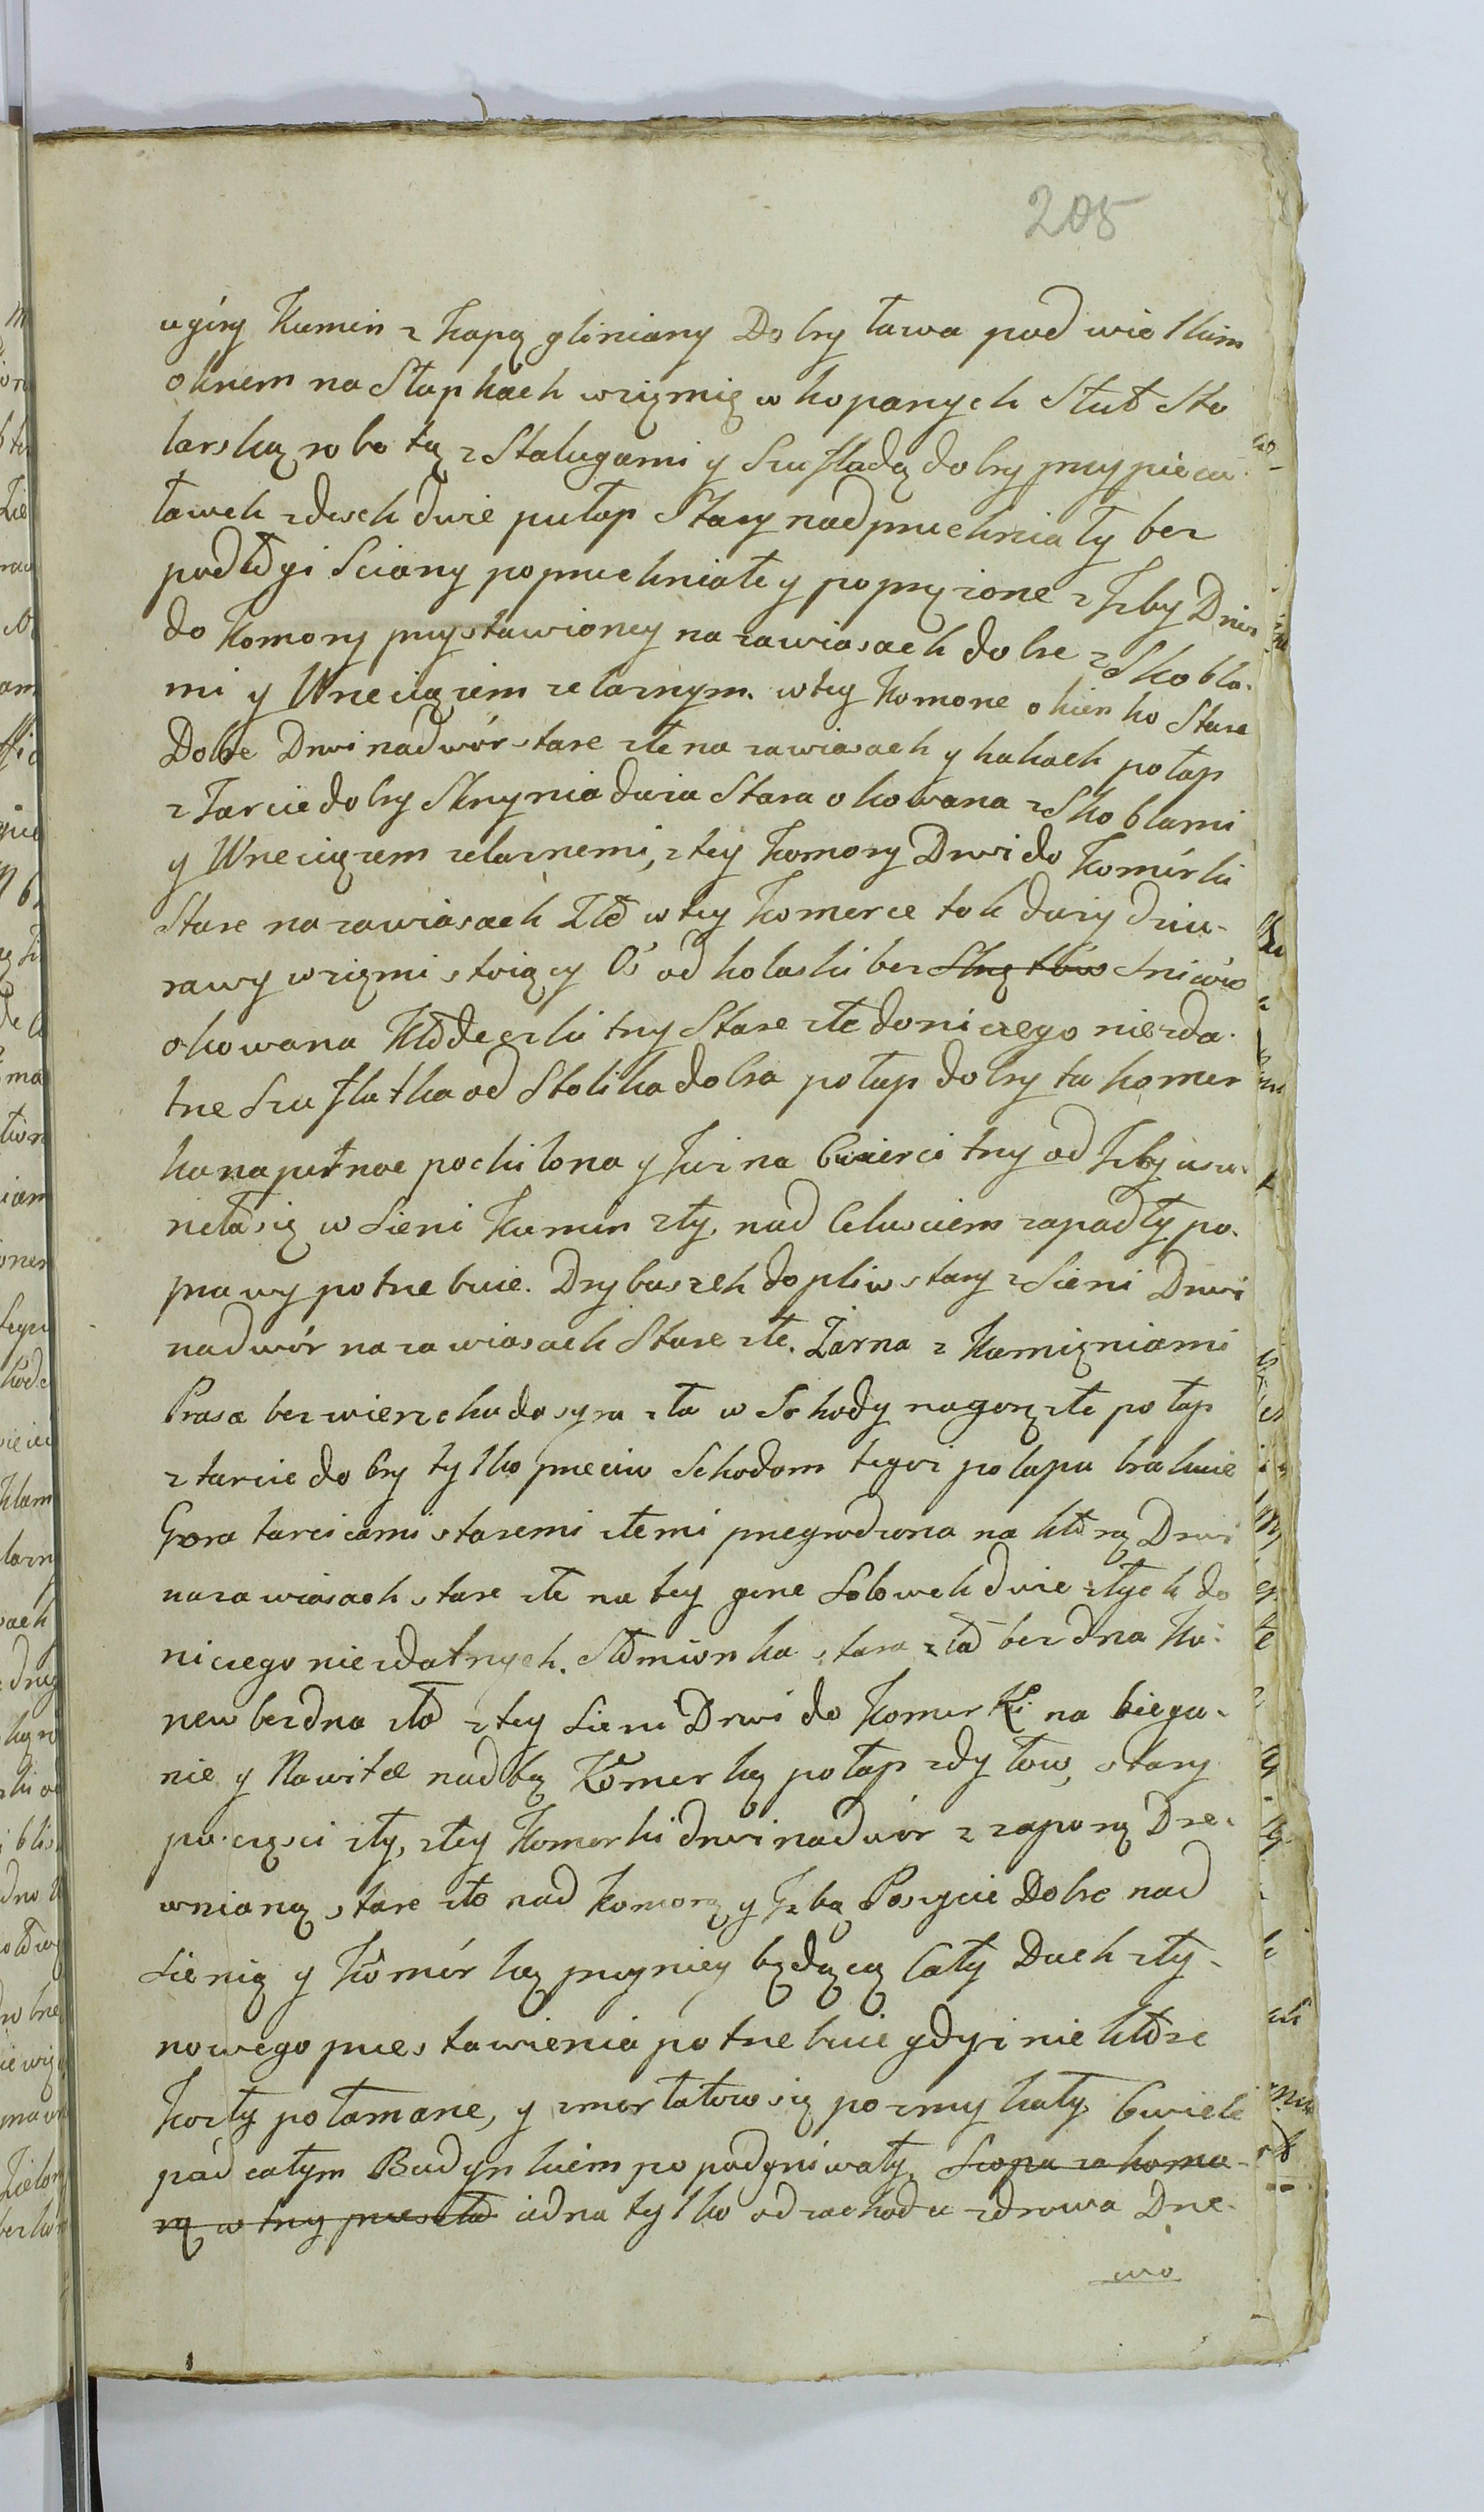 205
ugíry Kumin z kapą gliniany Dobry ława pod wielkim
oknem na Słupkach w zięmię wkopanych Stuł Sto
larską robotą z Stalugami y Szufladą dobry przy piecu
ławek zdesek dwie pułap Stary nadpruchniały bez
podłogi Sciany popruchniałe y poprężone z Izby Drzwi
do Komory przystawioney na zawiasach dobre z Skobla-
mi y Wrzeciązem zelaznym. w tey Komorze okienko Stare
Dobre Drzwi nadwór stare złe na zawiasach y hakach połap
z Tarcic dobry Skrzynia duża Stara okowana z Skoblami
y Wrzeciązem zelaznemi, z tey Komory Drzwi do Komórki
Stare na zawiasach Złe w tey Komorce tok duży dziu-
rawy w ziemi stoiący Oś od kolaski bez Skrętów Sniców
okowana Kłodeczki trzy Stare złe do niczego niezda-
tne Szuflatka od Stolika dobra połap dobry ta komur
ka na pułnoc pochilona y Juz na Cwierci trzy od Izby usu-
neła się w Sieni Kumin zły, nad Celusciem zapadły po-
prawy potrzebuie. Drybuszek do pliw stary z Sieni Drzwi
nadwór na zawiasach Stare złe. Żarna z Kamięniami
Prasa bez wierzchu do syra zła w Schody na gorę złe połap
z tarcic dobry tylko przeciw Schodom tegoz połapu brakuie
Gora tarcicami staremi złemi przegrodzona na którą Drzwi
na zawiasach stare złe na tey gorze Solowek dwie złych do
niczego niezdatnych. Słomionka stara zła bez dna Ko-
new bez dna zła z tey Sieni Drzwi do Komurki na biegu-
nie y Nawitce nad tą Komurką połap z dylow, stary
po częsci zły, z tey Komorki drzwi nadwór z zaporą Drze-
wnianą stare złe nad Komorą y Izbą Poszycie Dobre nad
Sienią y Komórką przyniey będącą Cały Dach zły
nowego przestawienia potrzebuie gdyż nie które
Kozły połamane, y z murłatow się pozmykały. Cwieki
pod całym Budynkiem popodgniwały, Szopa za komo-
rą w trzy przesła iedna tylko od zachodu zdrowa Drze-
wo